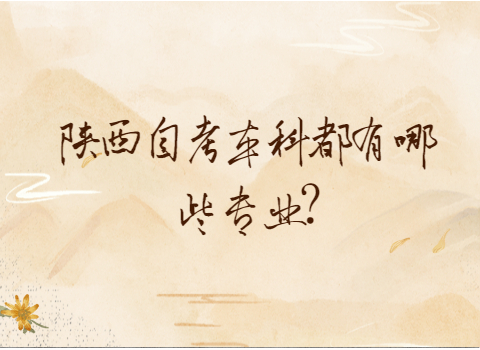 陕西自考本科都有哪
些专业?